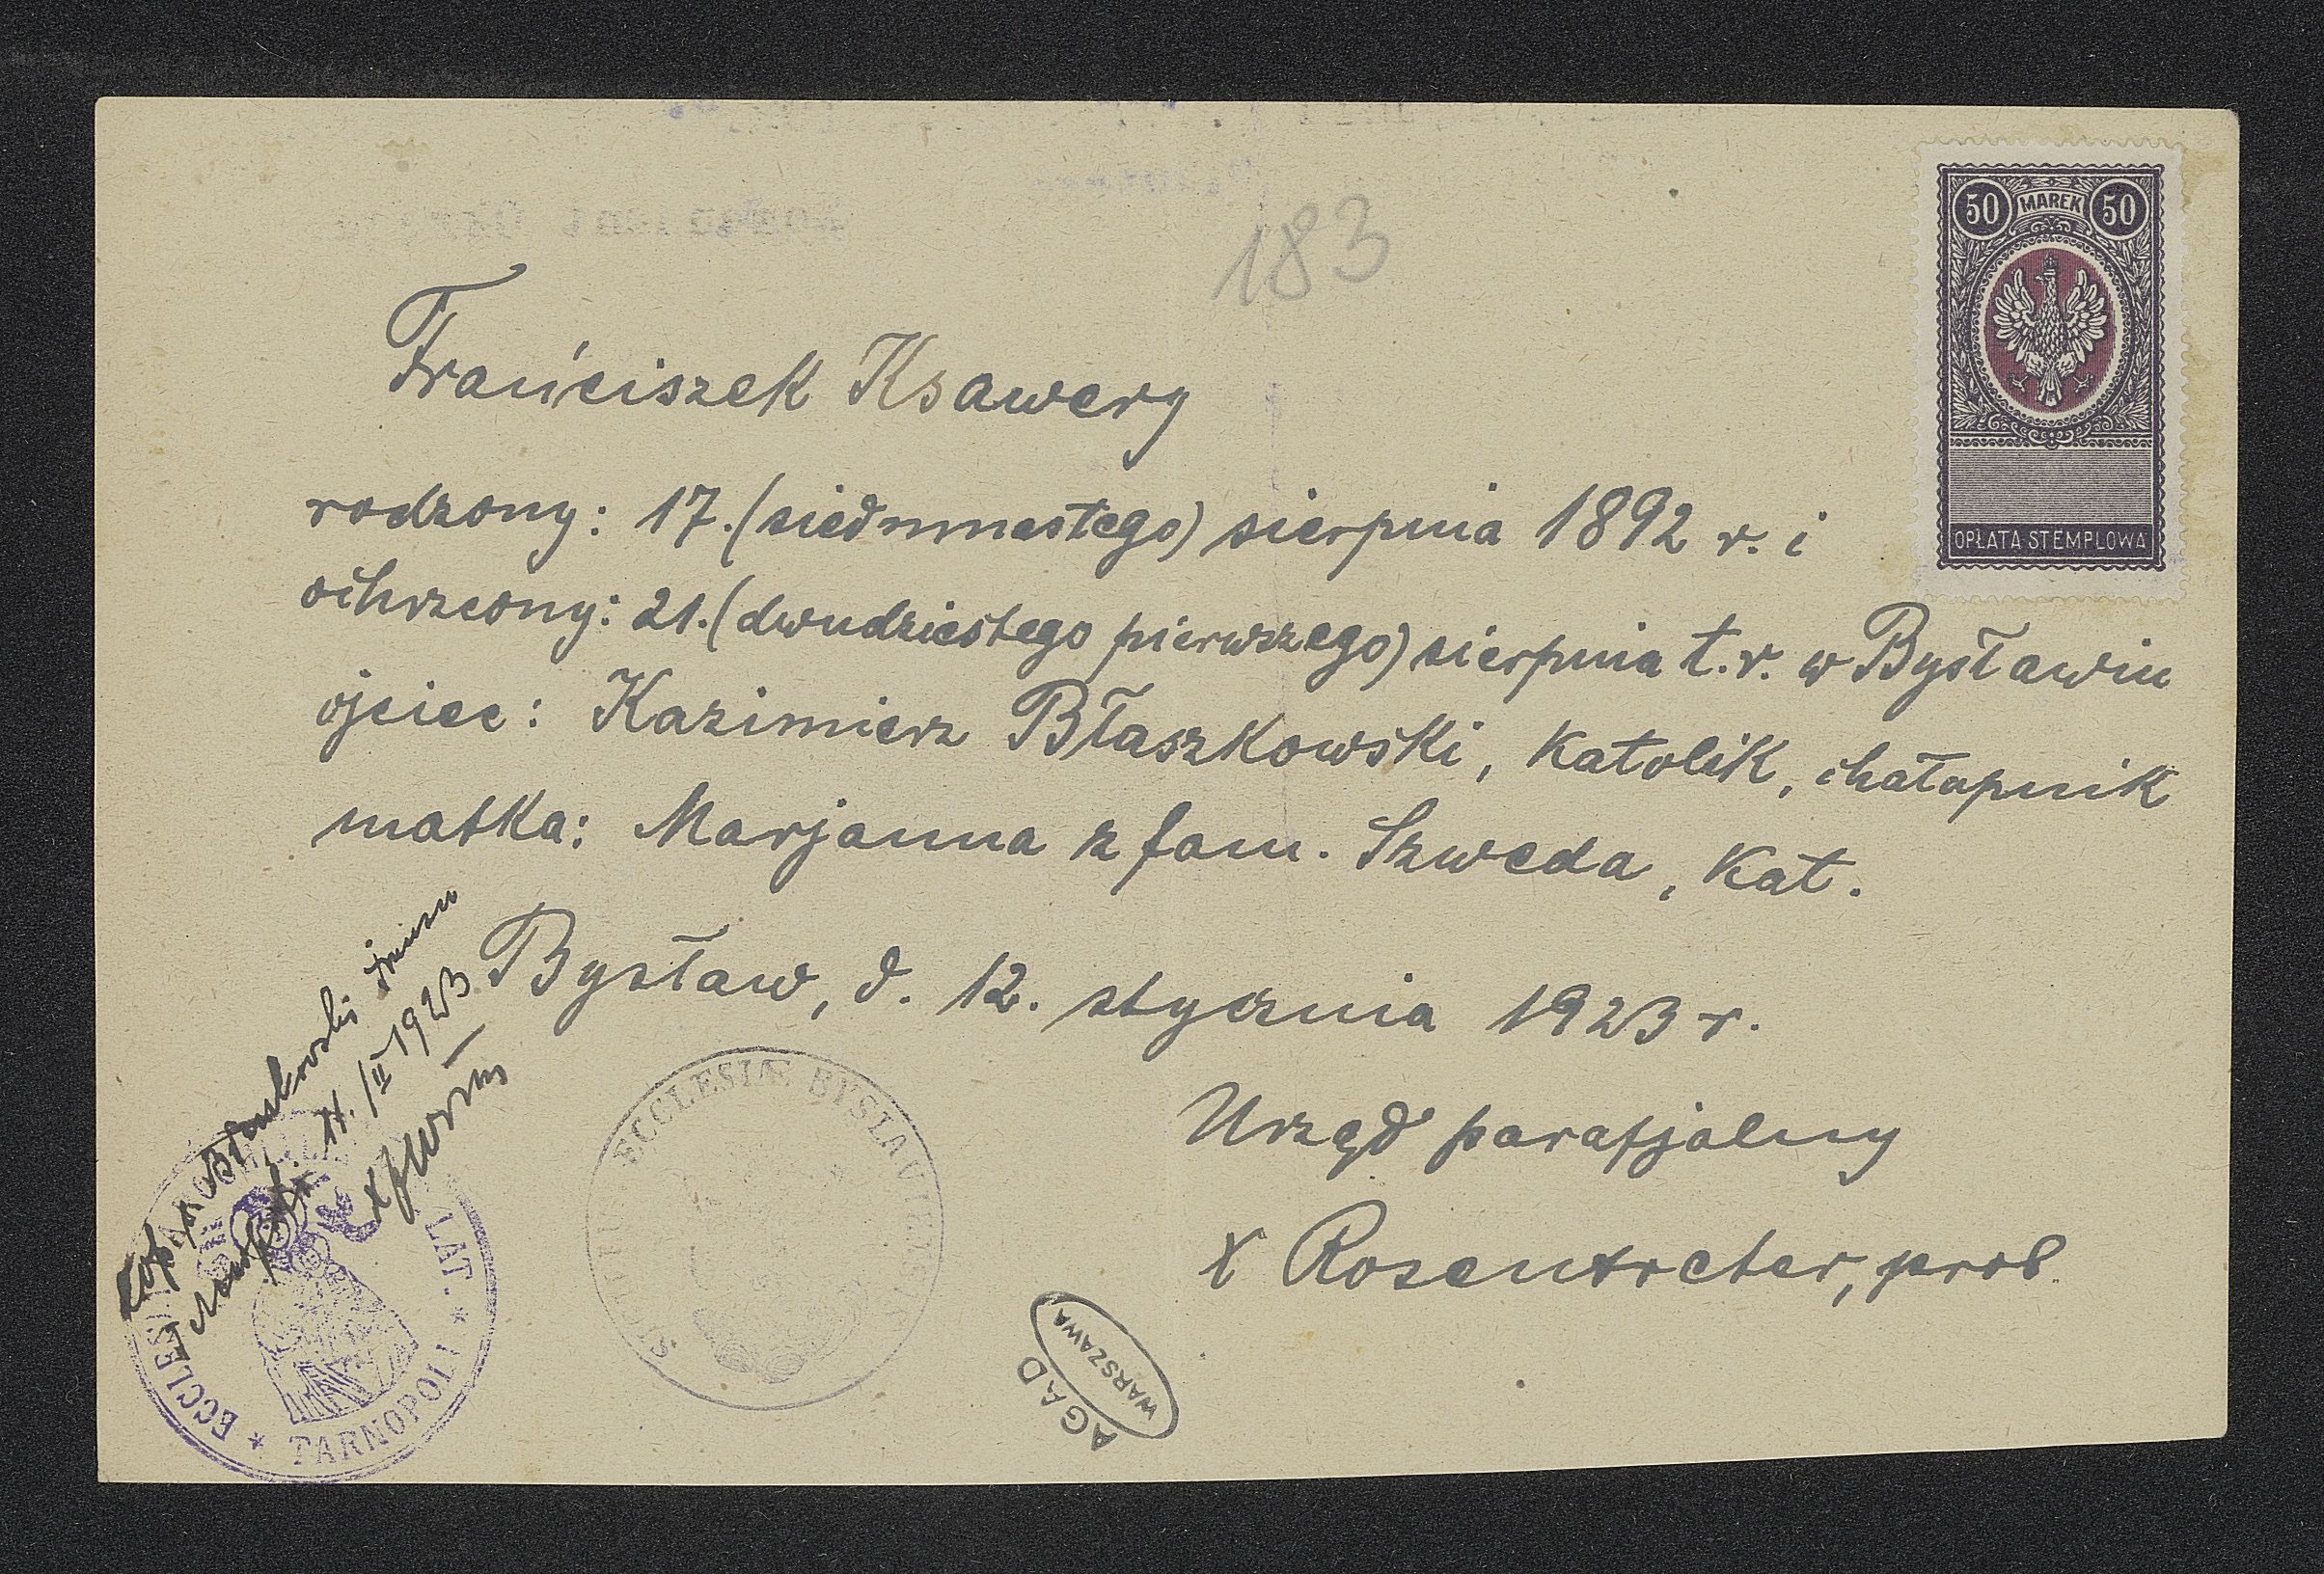 183
50 MAREK 50
OPŁATA STEMPLOWA
Frańciszek Ksawery
rodzony: 17. (siedmnastego) sierpnia 1892 r. i
ochrzcony: 21. (dwudziestego pierwszego) sierpnia t. r. w Bysławiu
ojciec: Kazimierz Błaszkowski, Katolik, chałupnik
matka: Marjanna z fam. Szweda, Kat.
Bysław, d. 12. stycznia 1923 r.
Urząd parafjalny
X Rosentreter, prob.
Błaszkowski
11./II 1923
ECCLESIÆ BYSLAVIEN
ECCLESI LAT. * TARNOPOLI *
AGAD
WARSZAWA